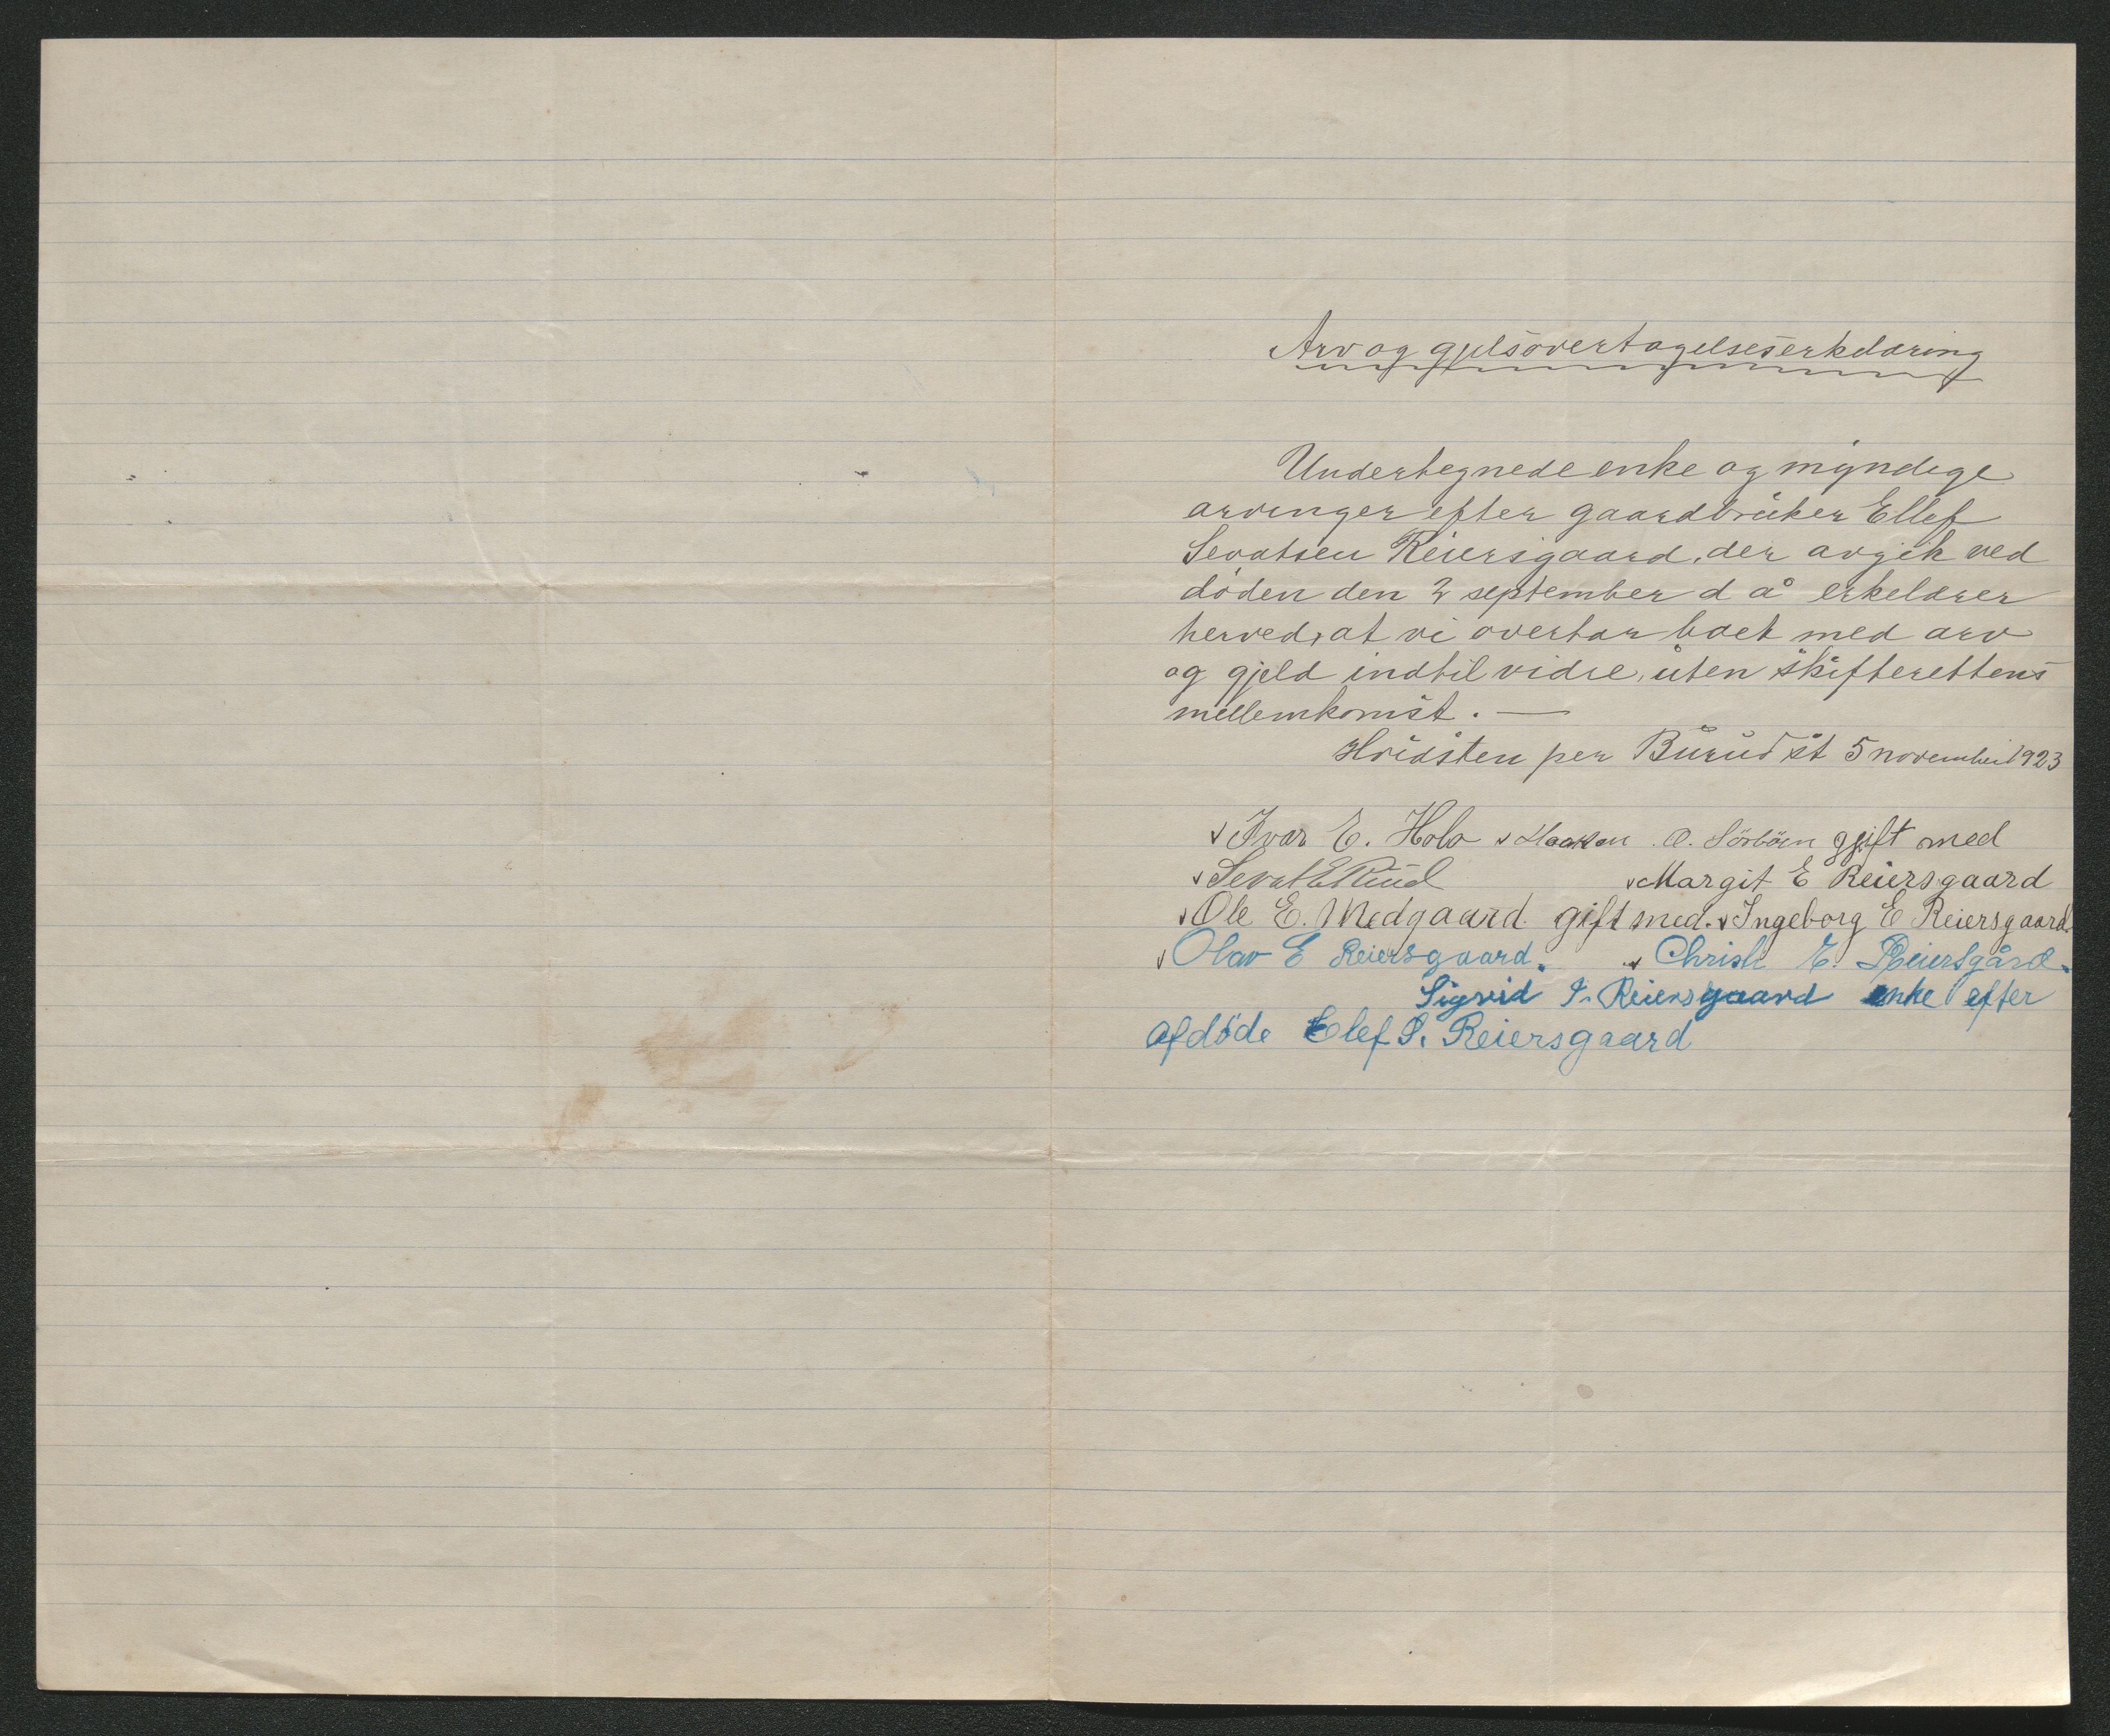 Arv og gjelsovertagelseserkelæring
Undertegnede enke og myndige
arvinger efter gaardbruker Ellef
Sevatsen Reiersgaard, der avgik ved
döden den 2 september d å erkelærer
herved, at vi overtar boet med arv
og gjeld indtil vidre, uten skifterettens
mellemkomst. —
Hvidsten per Burud st 5 november 1923
Ivar E. Holo Haakon O. Sörböen gjift med
Sevat E Ruud Margit E Reiersgaard
Ole E. Medgaard gift med. Ingeborg E Reiersgaard.
Olav E Reiersgaard. E. Reiersgård.
Sigrid I. Reiersgaard enke efter
afdöde Elef S. Reiersgaard